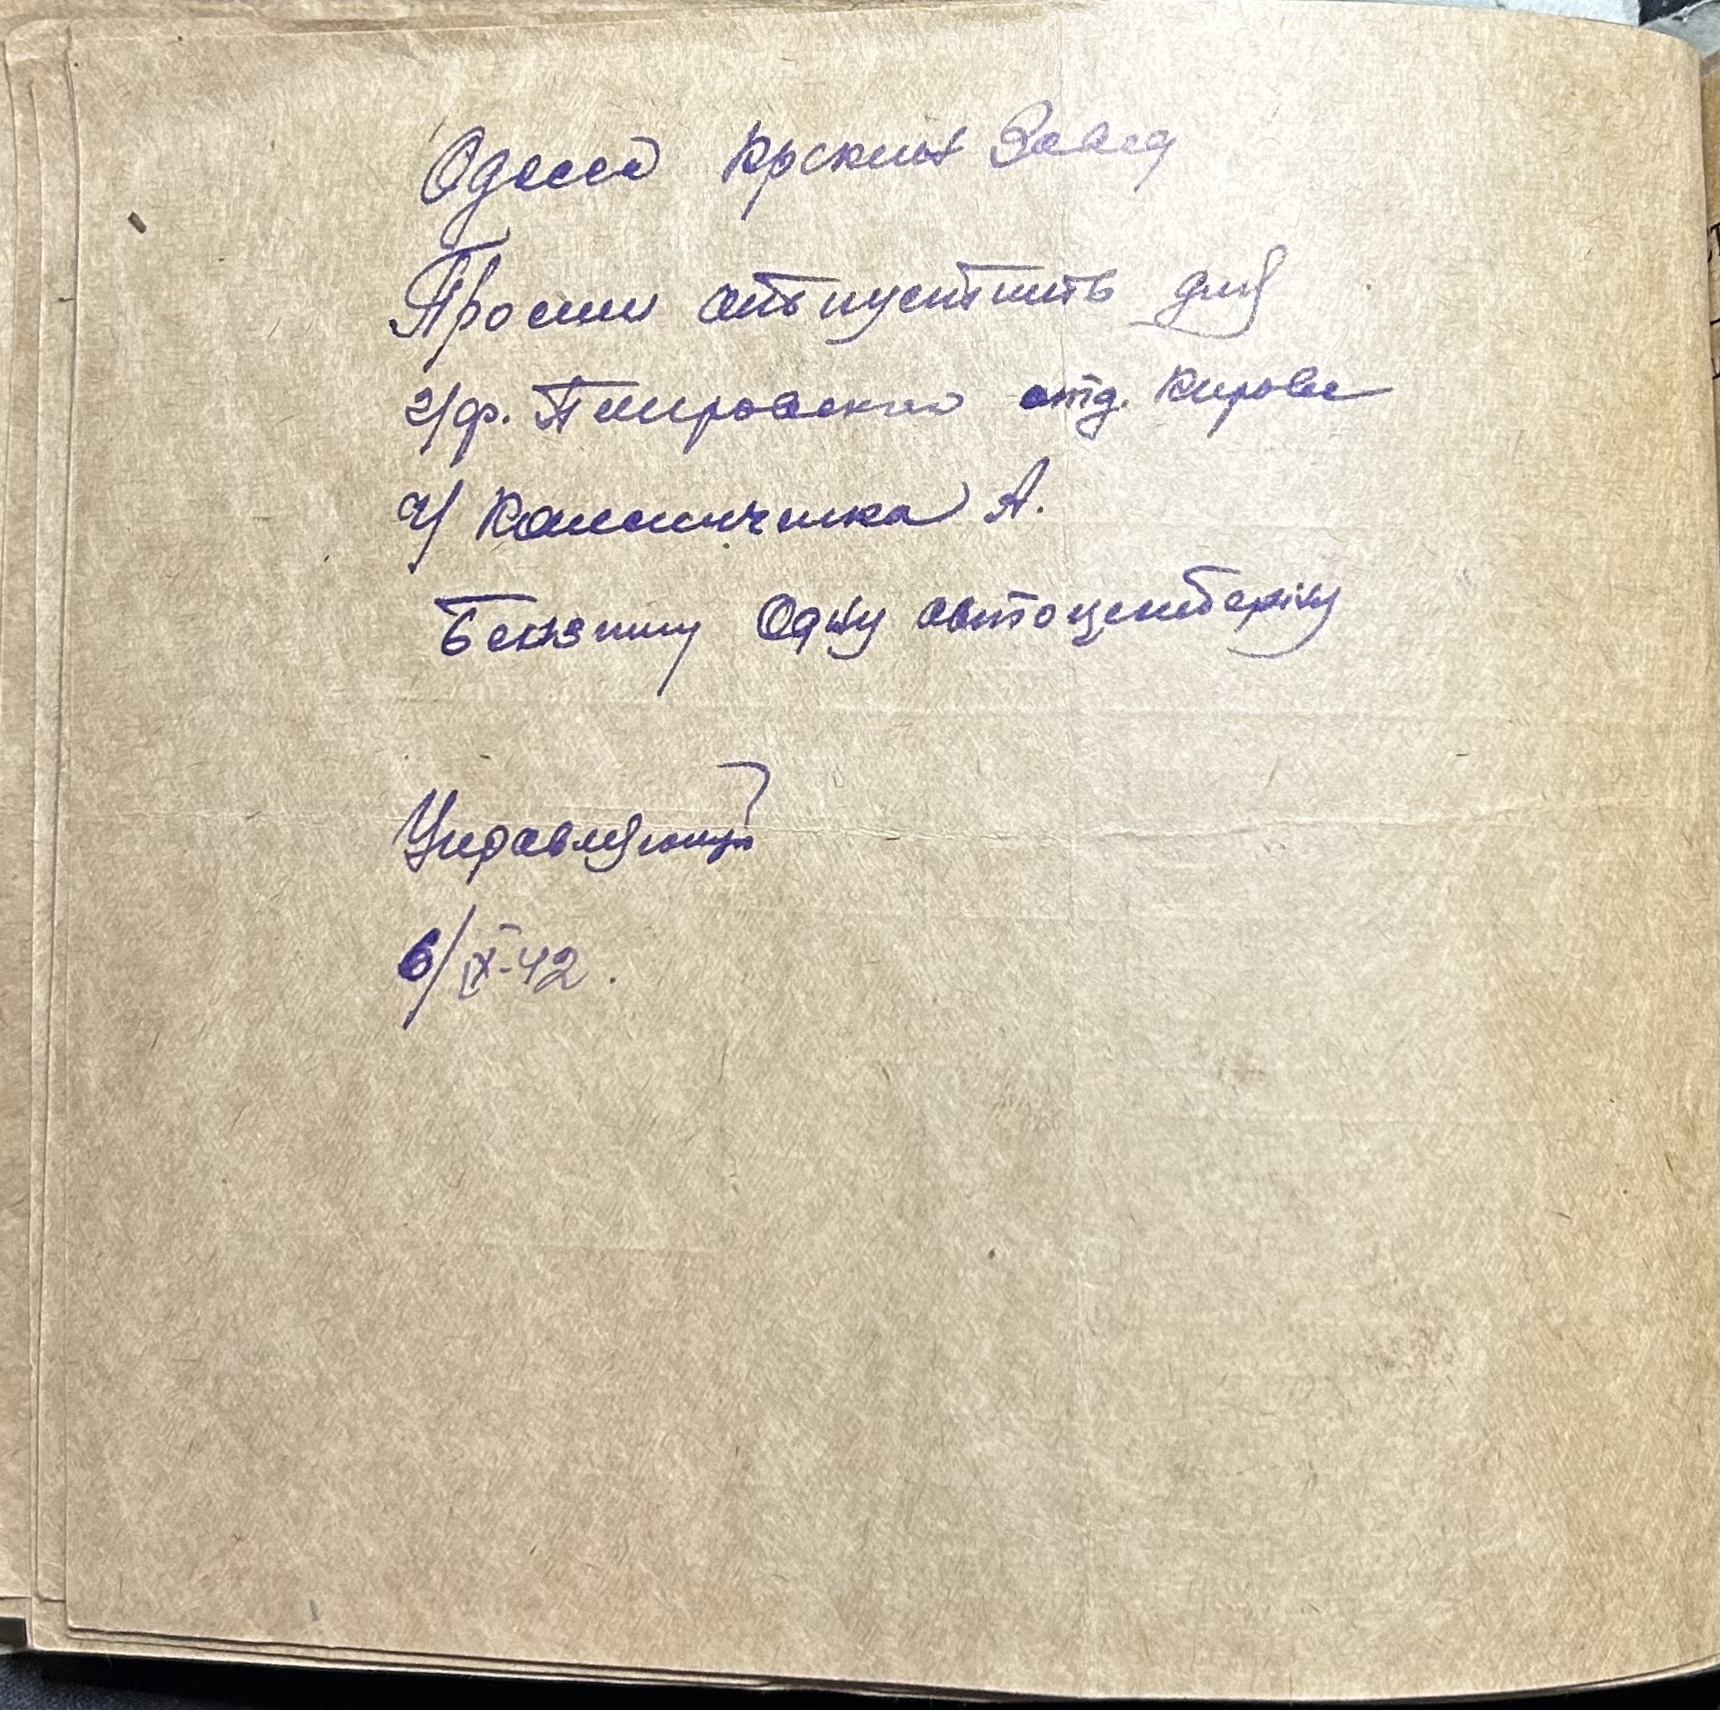 Одесса Крскит Завод
Просим отъпустить для
г/ф. Темировская отд. Кирова
ч/ Калиничинка А.
Бензину Одну автоцистерну
Управляющий
6/IX-42.